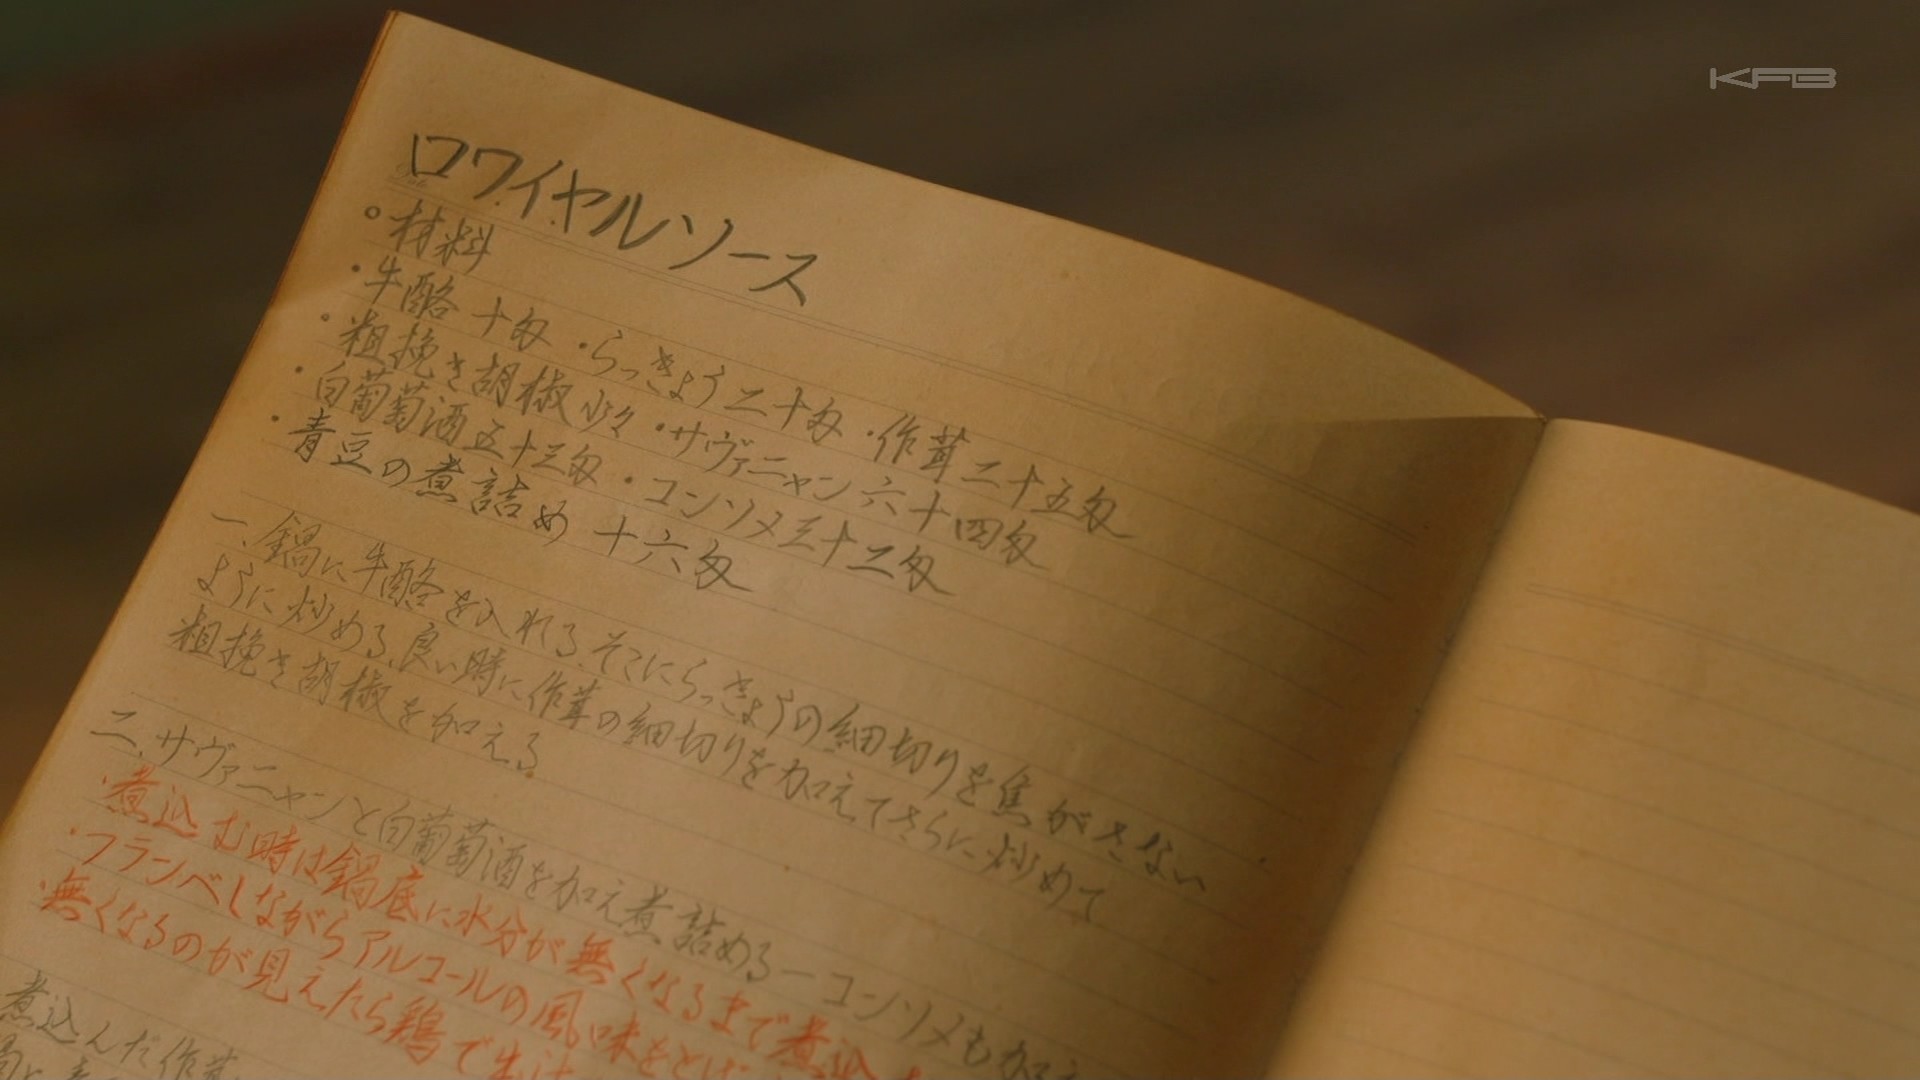 KFB
ロワイヤルソース
○材料
・牛酪 十匁 ・らっきょう二十匁 ・作茸二十五匁
・粗挽き胡椒少々 ・サヴァニャン六十四匁
・白葡萄酒五十三匁 ・コンソメ三十二匁
・青豆の煮詰め 十六匁
一、鍋に牛酪を入れる、そこにらっきょうの細切りを焦がさない
ように炒める、良い時に作茸の細切りを加えてさらに炒めて
粗挽き胡椒を加える
二、サヴァニャンと白葡萄酒を加え煮詰める―コンソメも加え
・煮込む時は鍋底に水分が無くなるまで煮込
・フランベしながらアルコールの風味をとば
・無くなるのが見えたら鶏で
煮込んだ作茸